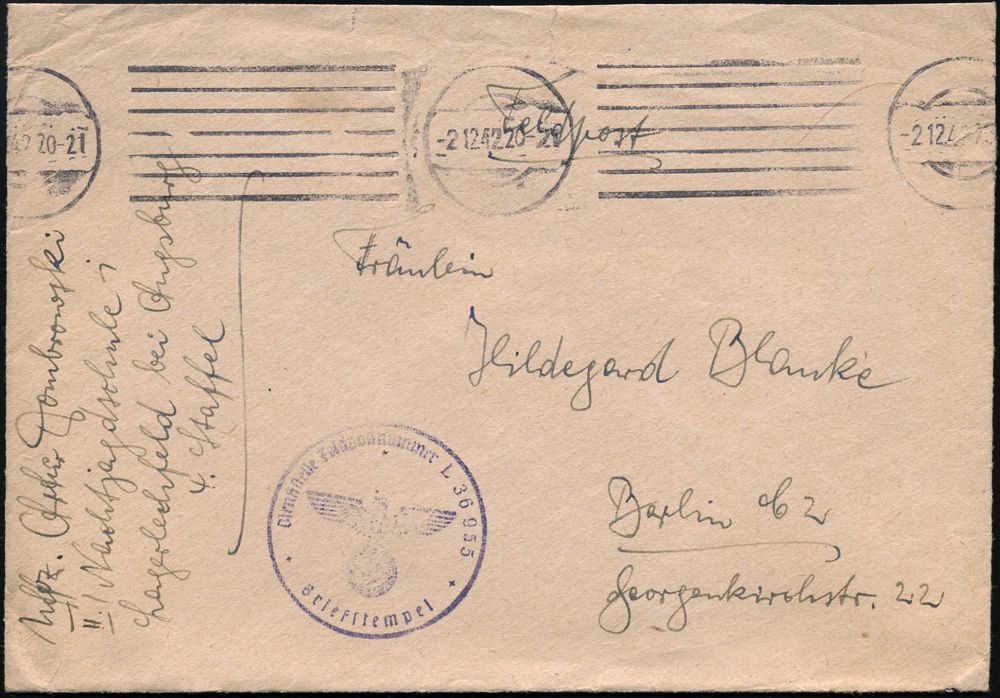 42 20-21
-2 12 42 20-21
-2 12 42
Feldpost
Fräulein
Hildegard Blanke
Berlin C 2
Georgenkirchstr. 22
Uffz. Dombrowski
II./ Nachtjagdschule 1
Lagerlechfeld bei Augsburg
4. Staffel
Dienststelle Feldpostnummer L 36955
Briefstempel